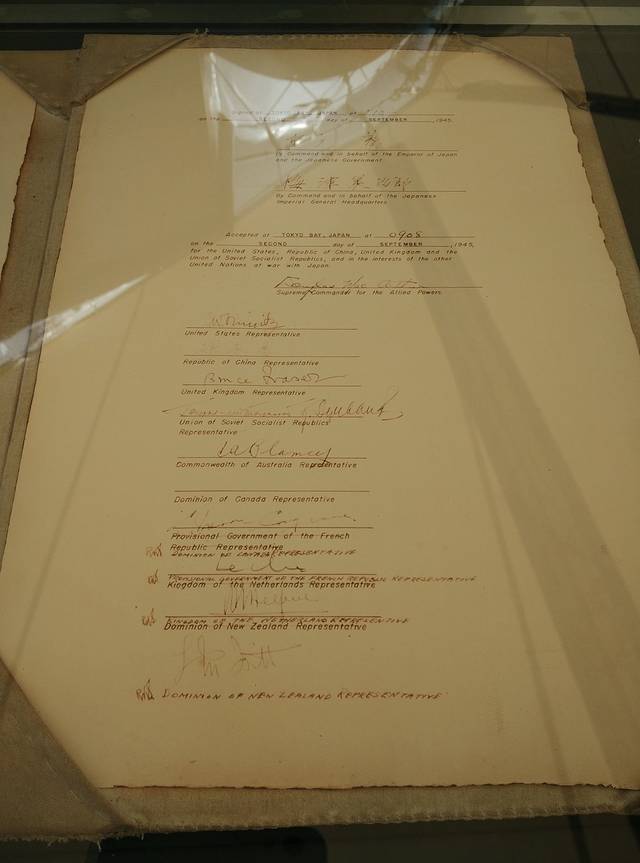 Signed at TOKYO BAY, JAPAN at
on the SECOND day of SEPTEMBER, 1945.
By Command and in behalf of the Emperor of Japan
and the Japanese Government.
梅津美治郎
By Command and in behalf of the Japanese
Imperial General Headquarters.
Accepted at TOKYO BAY, JAPAN at 0908
on the SECOND day of SEPTEMBER, 1945,
for the United States, Republic of China, United Kingdom and the
Union of Soviet Socialist Republics, and in the interests of the other
United Nations at war with Japan.
Douglas MacArthur
Supreme Commander for the Allied Powers.
United States Representative
Republic of China Representative
Bruce Fraser
United Kingdom Representative
Union of Soviet Socialist Republics
Representative
T A Blamey
Commonwealth of Australia Representative
Dominion of Canada Representative
Provisional Government of the French
Republic Representative
DOMINION OF CANADA REPRESENTATIVE
PROVISIONAL GOVERNMENT OF THE FRENCH REPUBLIC REPRESENTATIVE
Kingdom of the Netherlands Representative
KINGDOM OF THE NETHERLANDS REPRESENTATIVE
Dominion of New Zealand Representative
DOMINION OF NEW ZEALAND REPRESENTATIVE